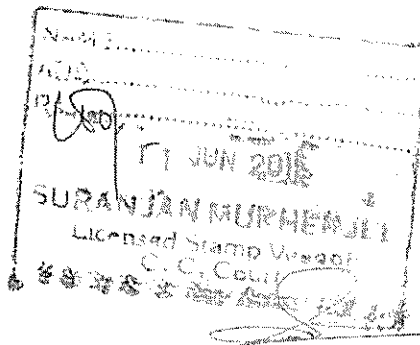 NAME
ADD
Rs. 100/
11 JUN 2018
SURANJAN MUKHERJEE
Licensed Stamp Vendor
C. C. Court